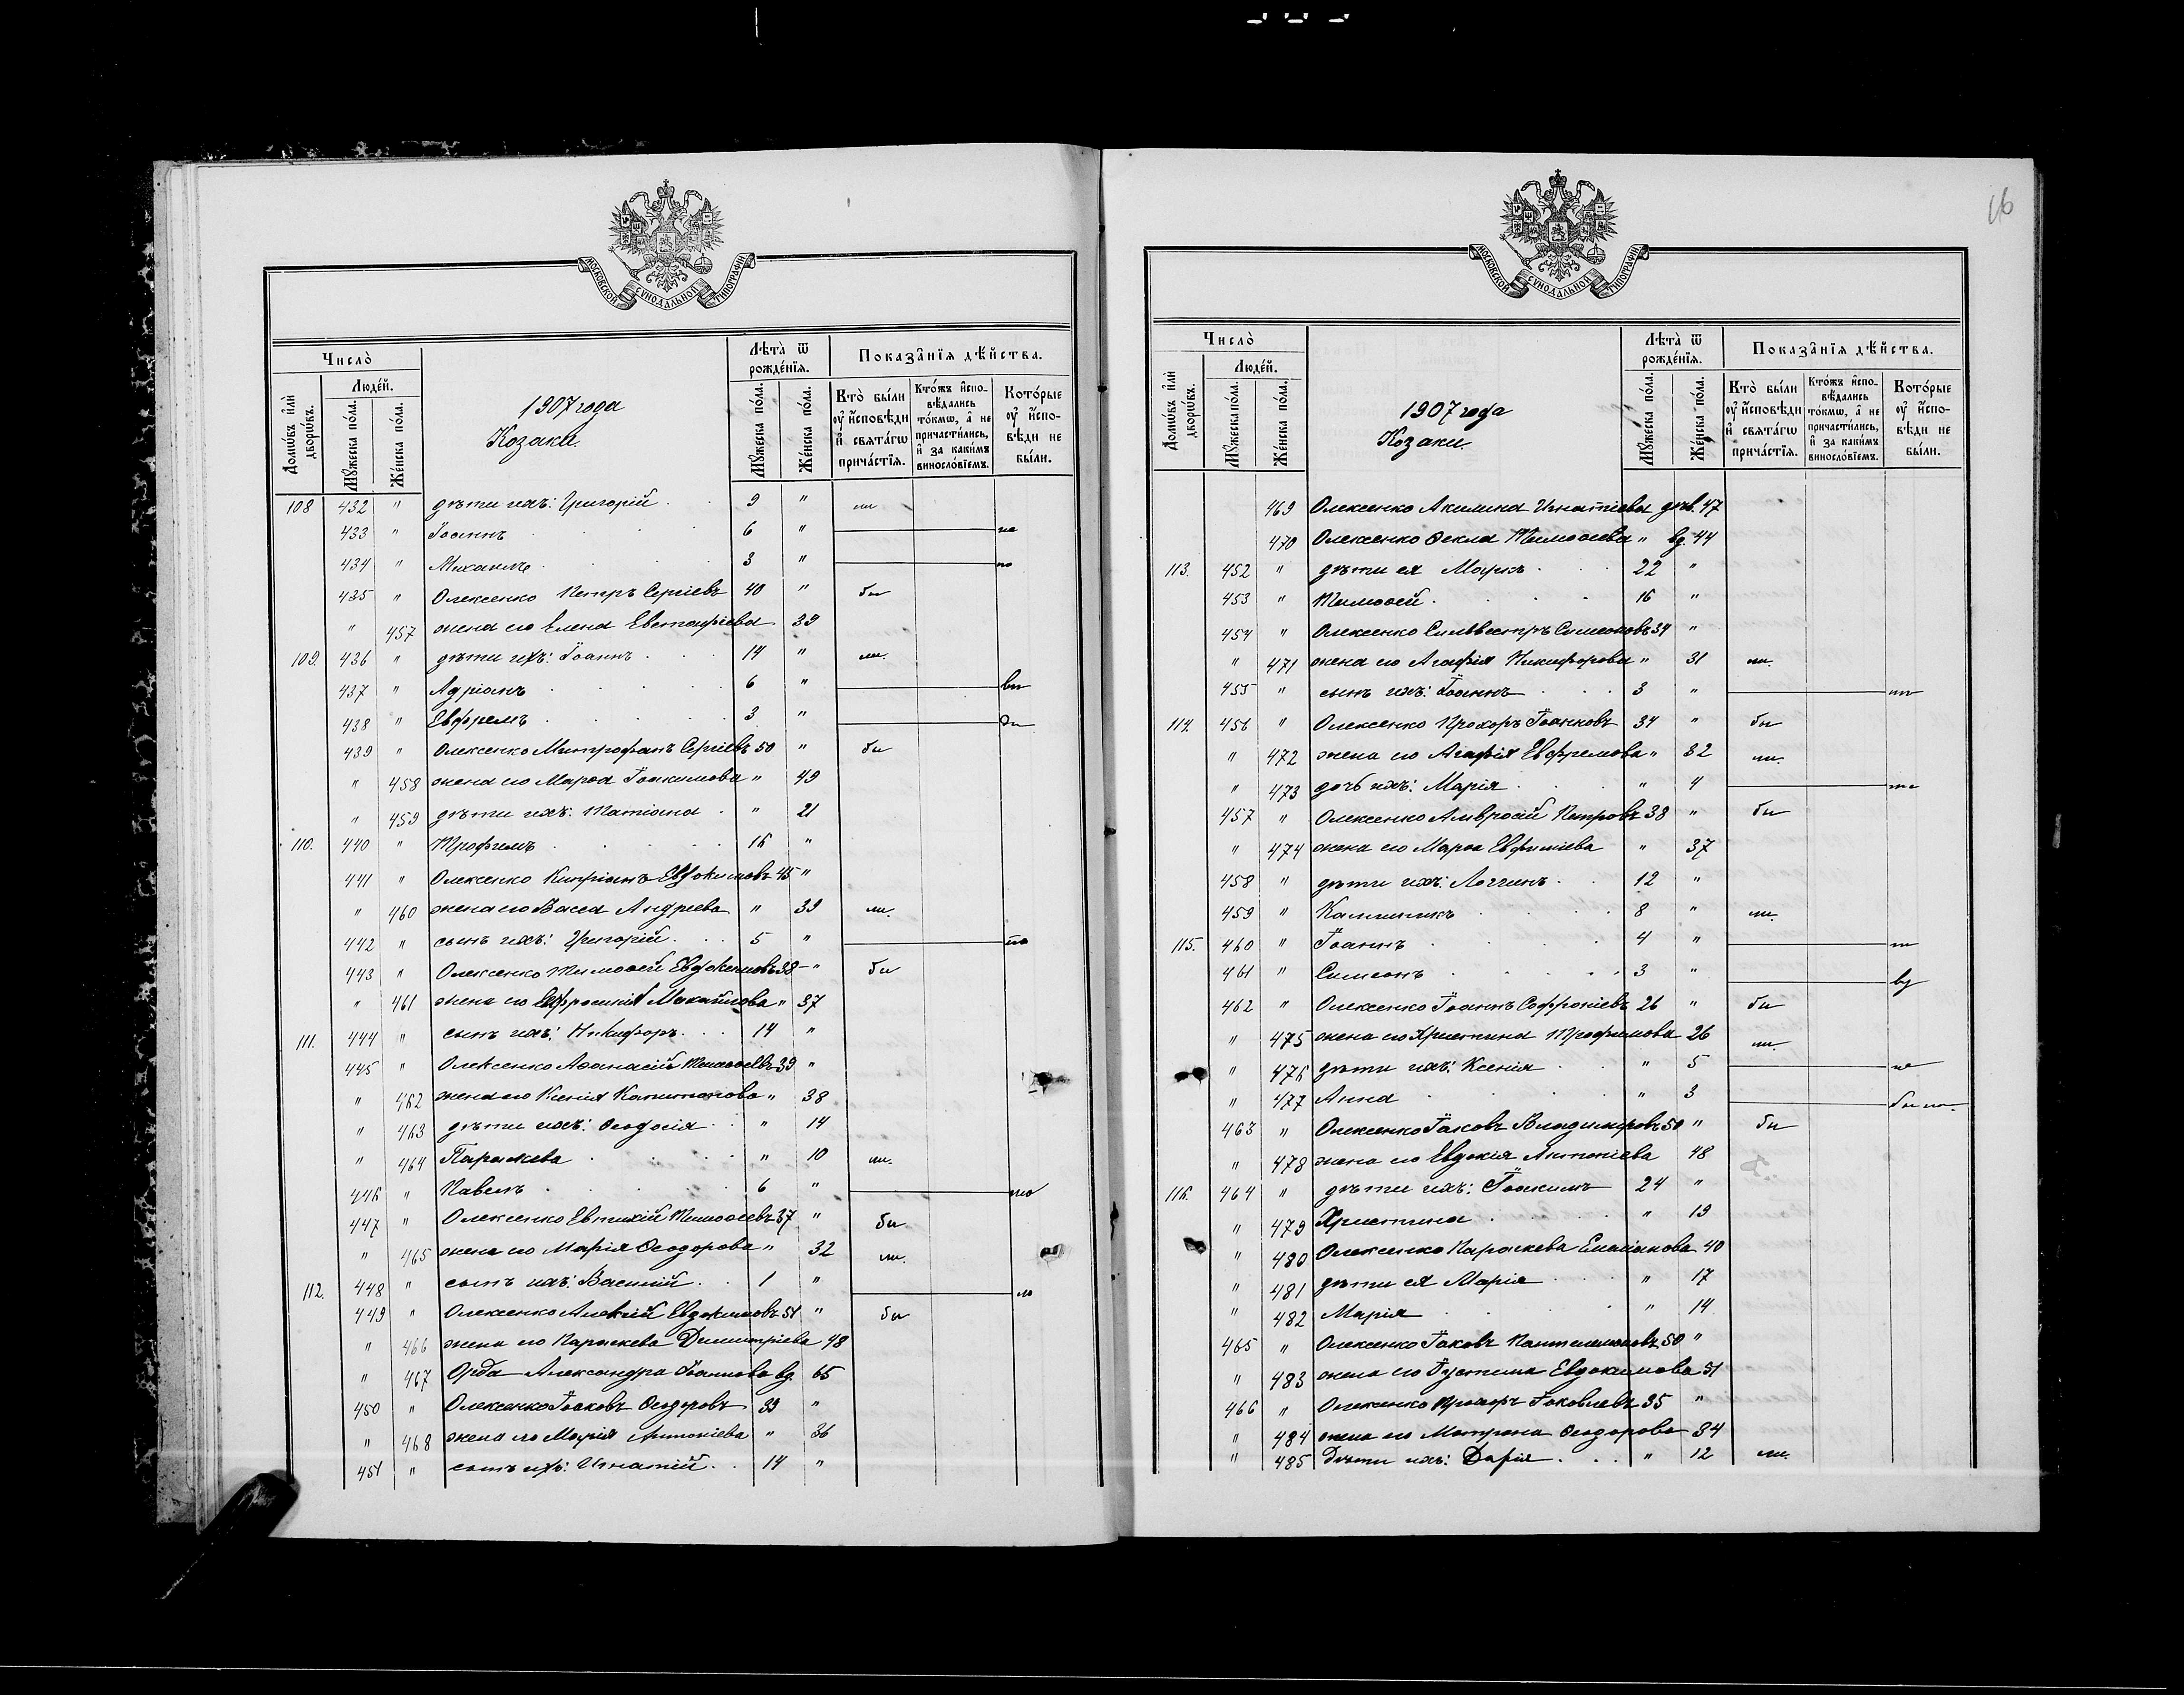 16
МОСКОВСКОЙ СѴНОДАЛЬНОЙ ТИПОГРАФІИ
Число̀
Люде́й.
Домѡ́въ и҆лѝ дворѡ́въ.
Мꙋ́жеска по́ла.
Же́нска по́ла.
1907 года
Козаки.
Лѣта̀ ѿ рожде́нїѧ.
Мꙋ́жеска по́ла.
Же́нска по́ла.
Показа̂нїѧ дѣ́йства.
Кто̀ бы́ли ᲂу҆ и҆́сповѣди и҆ свѧта́гѡ прича́стїѧ.
Кто́жъ и҆спо­вѣ́дались то́кмѡ, а҆ не причасти́лись, и҆ за каки́мъ винословїемъ.
Кото́рые ᲂу҆ и҆́спо­вѣди не бы́ли.
108 432 " дѣти ихъ: Григорій 9 " ли
433 " Іоаннъ 6 " не
434 " Михаилъ 3 "
435 " Олексенко Петръ Сергіевъ 40 " бы
" 457 жена его Елена Евстафіева 39
109. 436 " дѣти ихъ: Іоаннъ 14 " ли.
437 " Адріанъ 6 "
438 " Евфремъ 3 "
439 " Олексенко Митрофанъ Сергіевъ 50 " бы
" 458 жена его Марѳа Іоакимова " 49
" 459 дѣти ихъ: Татіана " 21
110. 440 " Трофимъ 16 "
441 " Олексенко Кипріанъ Евдокимовъ 45 "
" 460 жена его Васса Андреева " 39 ли.
442 " сынъ ихъ: Григорій 5 "
443 " Олексенко Тимоѳей Евдокимовъ 38 " бы
" 461 жена его Евфросинія Михайлова " 37
111. 444 " сынъ ихъ: Никифоръ 14 "
445 " Олексенко Аѳанасій Тимоѳеевъ 39 "
" 462 жена его Ксенія Капитонова " 38
" 463 дѣти ихъ: Ѳеодосія " 14
" 464 Параскева " 10 ли.
446 " Павелъ 6 "
447 " Олексенко Евтихій Тимоѳеевъ 37 " бы
" 465 жена его Марія Ѳеодорова " 32 ли.
112. 448 " сынъ ихъ: Василій 1 "
449 " Олексенко Алексій Евдокимовъ 51 " бы
" 466 жена его Параскева Димитріева 48
" 467 Орда Александра Іоаннова вд. 65
450 " Олексенко Іоаковъ Ѳеодоровъ 39 "
" 468 жена его Марія Антоніева " 36
451 " сынъ ихъ: Игнатій 14 "
МОСКОВСКОЙ СѴНОДАЛЬНОЙ ТИПОГРАФІИ
Число̀
Люде́й.
Домѡ́въ и҆лѝ дворѡ́въ.
Мꙋ́жеска по́ла.
Же́нска по́ла.
1907 года
Козаки.
Лѣта̀ ѿ рожде́нїѧ.
Мꙋ́жеска по́ла.
Же́нска по́ла.
Показа̂нїѧ дѣ́йства.
Кто̀ бы́ли ᲂу҆ и҆́сповѣди и҆ свѧта́гѡ прича́стїѧ.
Кто́жъ и҆спо­вѣ́дались то́кмѡ, а҆ не причасти́лись, и҆ за каки́мъ винословїемъ.
Кото́рые ᲂу҆ и҆́спо­вѣди не бы́ли.
469 Олексенко Акилина Игнатіева дѣв. 47
470 Олексенко Ѳекла Тимоѳеева " вд. 44
113. 452 " дѣти ея Маркъ 22 "
453 " Тимоѳей 16 "
454 " Олексенко Сильвестръ Симеоновъ 34 "
" 471 жена его Агафія Никифорова " 31 ли.
455 " сынъ ихъ: Іоаннъ 3 "
114. 456 " Олексенко Прохоръ Іоанновъ 34 " бы
" 472 жена его Агафія Евфремова " 32 ли.
" 473 дочь ихъ: Марія " 4
457 " Олексенко Амвросій Петровъ 38 " бы
" 474 жена его Марѳа Евфиміева " 37
458 " дѣти ихъ: Логгинъ 12 "
459 " Каллиникъ 8 " ли.
115. 460 " Іоаннъ 4 "
461 " Симеонъ 3 "
462 " Олексенко Іоаннъ Софроніевъ 26 " бы
" 475 жена его Христина Трофимова 26 ли.
" 476 дѣти ихъ: Ксенія " 5 не
" 477 Анна " 3
463 " Олексенко Іаковъ Владиміровъ 50 " бы
" 478 жена его Евдокія Антоніева 48
116. 464 " дѣти ихъ: Іоакимъ 24 "
" 479 Христина " 19
" 480 Олексенко Параскева Емиліанова 40
" 481 дѣти ея Марія " 17
" 482 Марія " 14
465 " Олексенко Іаковъ Пантелеимоновъ 50 "
" 483 жена его Іустина Евдокимова 51
466 " Олексенко Прохоръ Іаковлевъ 35 "
" 484 жена его Матрона Ѳеодорова 34
" 485 Дѣти ихъ: Дарія " 12 ли.